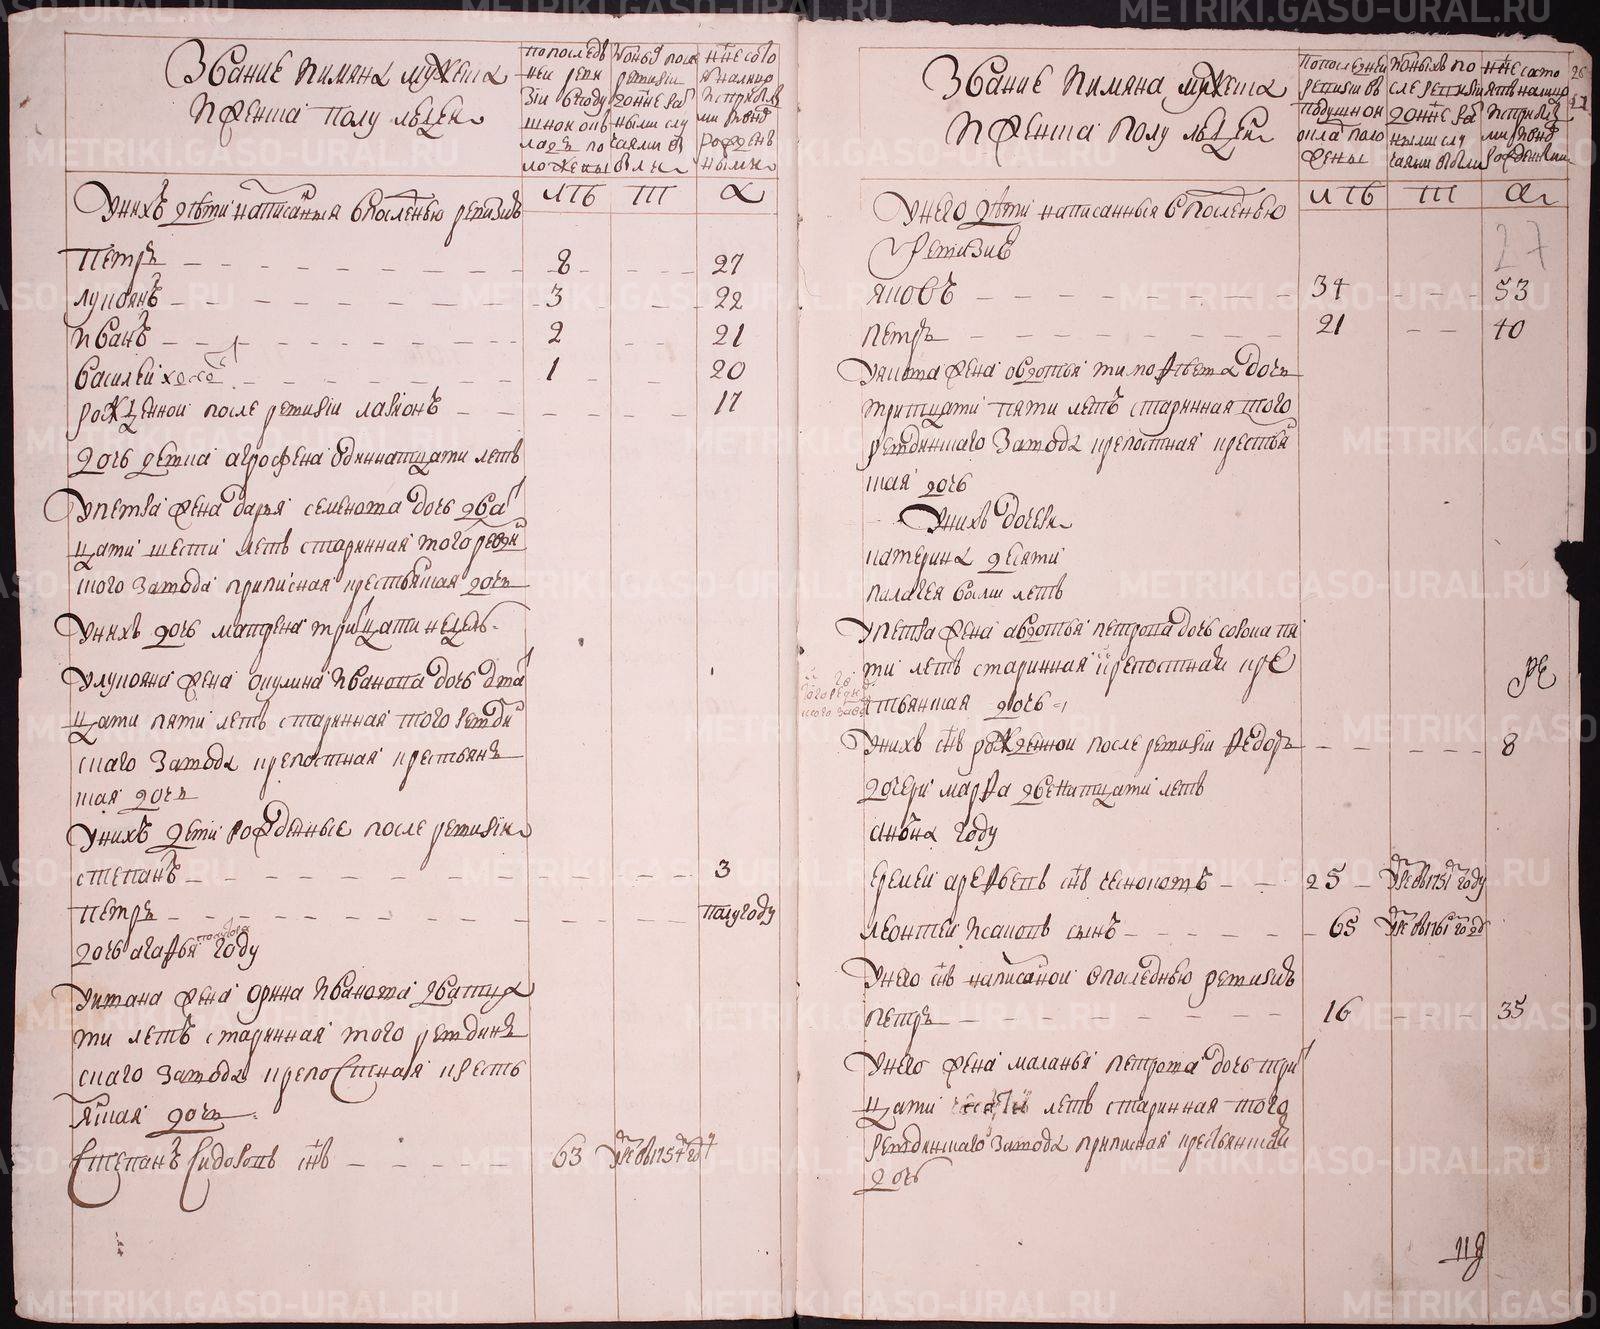 Звание и имяна мужеска
и женска полу людеи
по послед
ней реви
зіи в поду
шнои окъ
ладъ по
ложены
и оных поса
ревизіи
до нне ра
зными слу
чаями у
были
нне съ во
и с прибыл
ми и внов
рожден
ными
лтъ
У нихъ дѣти написанныя в последнюю ревизию
Петръ 8 27
лупоянъ 3 22
иванъ 2 21
василей 1 20
рожденнои после ревизіи ларионъ 17
дочь девка агрофена одиннатцати летъ
У петра жена дарья семенова дочь два
цати шести летъ старинная того ревди
нского завода приписная крестьянская дочь
У нихъ дочь матрена трицати недель
У лупояна жена окулина иванова дочь два
цати пяти летъ старинная того ревди
нскаго завода крепостная крестьян
ская дочь
У нихъ дети рожденные после ревизіи
степанъ 3
Петръ полугоду
дочь агафья году
У ивана жена орина иванова дватца
ти летъ старинная того ревдин
скаго завода крепостная кресть
янская дочь
Степанъ Сидоровъ снъ 63 умре в 1754 году
Звание и имяна мужеска
и женска полу людеи
По последней
ревизіи въ
подушнои
окладъ поло
жены
И оныхъ по
сле ревизіи
до нне ра
зными слу
чаями убыли
нне состо
итъ налицо
и с прибыл
ми и внов
рожденными
26
лтъ
У него дѣти написанныя в последнюю
ревизию
27
яковъ 34 53
петръ 21 40
У якова жена овдотья тимофѣева дочь
тритцати пяти летъ старинная того
ревдинскаго завода крепостная крестья
ская дочь
У нихъ дочери
катерина десяти
палагея осми летъ
У петра жена авдотья петрова дочь сорока пя
ти летъ старинная крепостная кре
стьянская дочь
того ревдин
скаго завода
У нихъ снъ рожденнои после ревизіи Федоръ 8
дочери марфа двенатцати летъ
анна году
Еремей арефьевъ снъ чесноковъ 25 умре в 1751 году
леонтей исаковъ сынъ 65 умре в 1761 году
У него снъ написанои в последнюю ревизию
петръ 16 35
У него жена маланья петрова дочь три
цати летъ старинная того
ревдинскаго завода приписная крестьянская
дочь
118